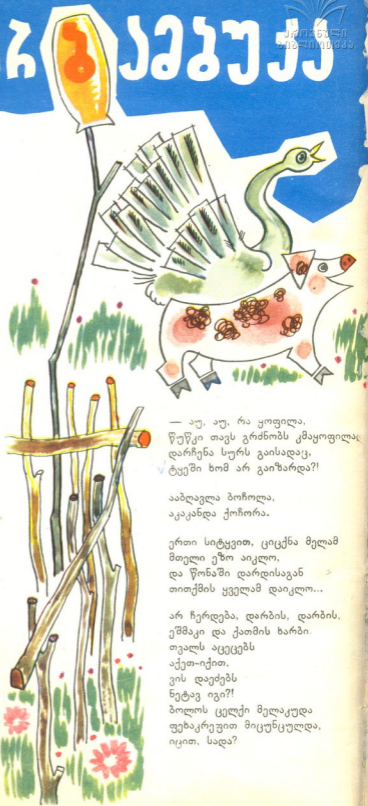 ამბუქა
ეროვნული
ბიბლიოთეკა
— აუ, აუ, რა ყოფილა,
წუწკი თავს გრძნობს კმაყოფილად
დარჩენა სურს გაისადაც,
ტყეში ხომ არ გაიზარდა?!
ააბღავლა ბოჩოლა,
აკაკანდა ქოჩორა.
ერთი სიტყვით, ციცქნა მელამ
მთელი ეზო აიკლო,
და წონაში დარდისაგან
თითქმის ყველამ დაიკლო...
არ ჩერდება, დარბის, დარბის,
ეშმაკი და ქათმის ხარბი
თვალს აცეცებს
აქეთ-იქით.
ვის დაეძებს
ნეტავ იგი?!
ბოლოს ცელქი მელაკუდა
ფეხაკრეფით მიცუნცულდა,
იცით, სადა?